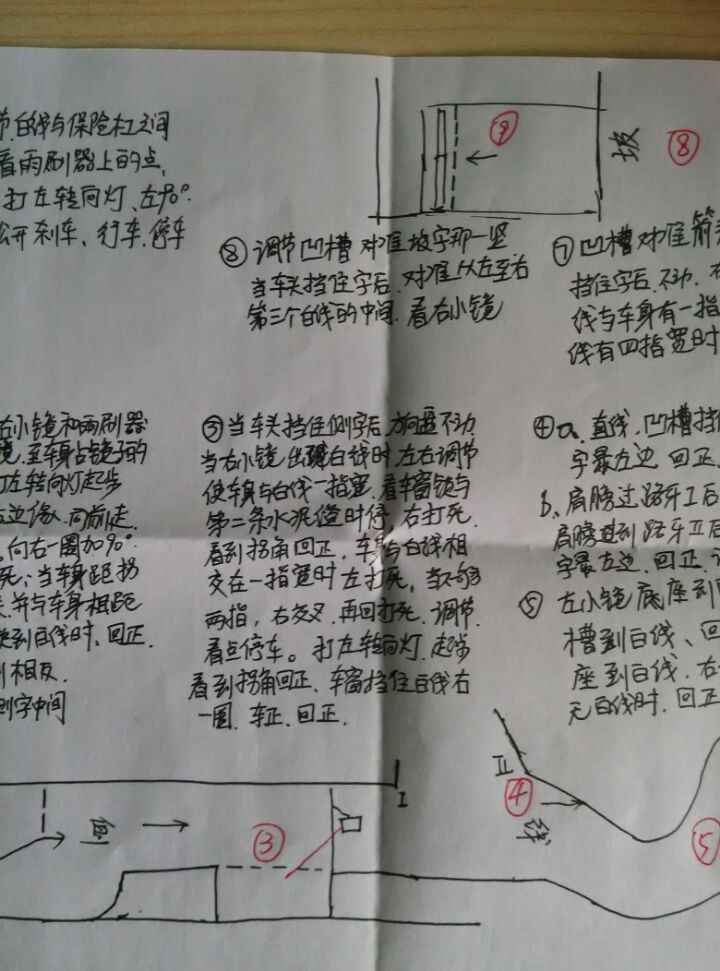 节白线与保险杠之间
看雨刷器上的点,
打左转向灯、左90°.
松开刹车、行车.停车
⑨
坡
⑧
⑧ 调节凹槽对准坡字那一竖
当车头挡住字后.对准从左至右
第三个白线的中间.看右小镜
⑦ 凹槽对准箭
挡住字后.不动.右
线与车身有一指
线有四指宽时
右小镜和雨刷器
镜.至车身占镜子的
打左转向灯起步
左边缘.向前走.
.向右一圈加90°.
死;当车身距拐
并与车身相距
到白线时、回正.
相反.
侧字中间
③ 当车头挡住侧字后.方向盘不动
当右小镜出现白线时.左右调节
使车身与白线一指宽.看车窗锁与
第二条水泥缝时停.右打死.
看到拐角回正.车身与白线相
交在一指宽时左打死.当不够
两指,右交叉.再回打死.调节.
看点停车。打左转向灯.起步
看到拐角回正、车窗挡住白线右
一圈.车正.回正.
④ a.直线.凹槽挡
字最左边.回正.
b.肩膀过路牙I后
肩膀过到路牙II后
字最左边.回正.
⑤ 左小镜底座到
槽到白线、回
座到白线.右
无白线时.回正
侧
③
I
II
④
线
⑤